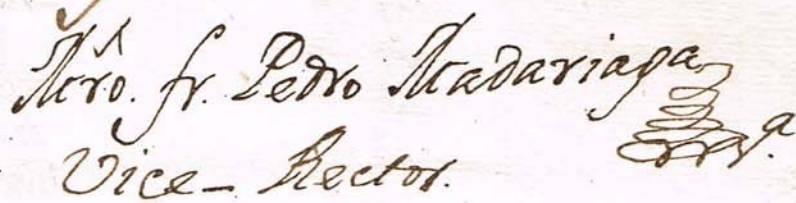 Mrô. fr. Pedro Madariaga
Vice- Rector.